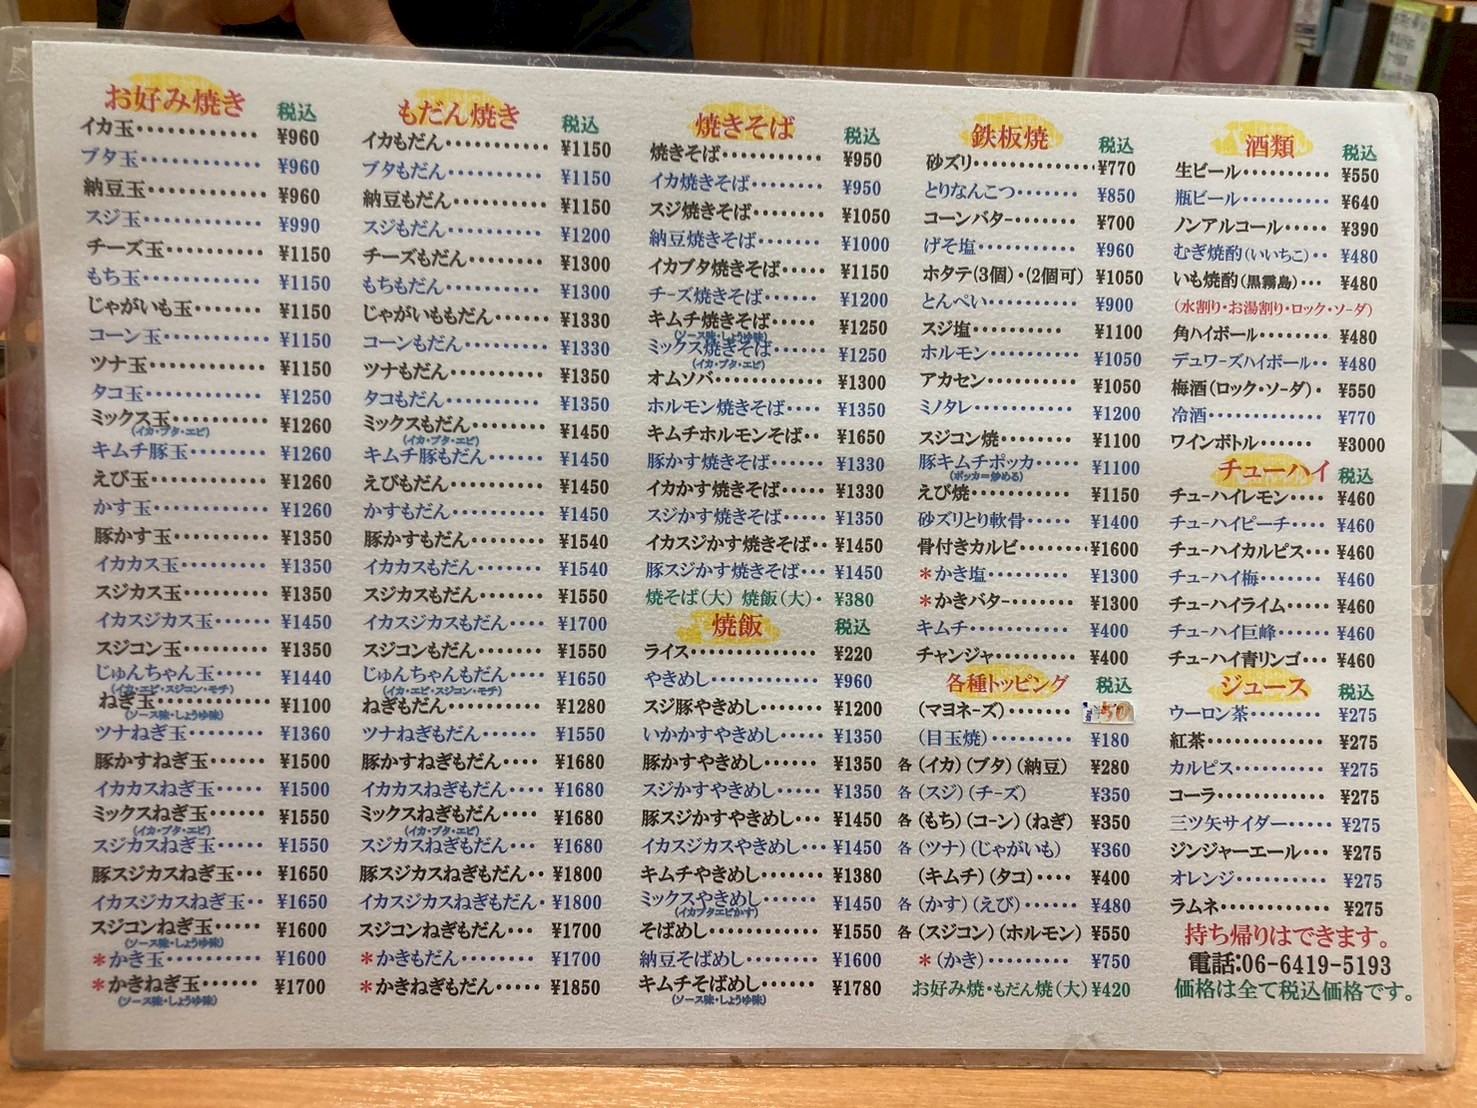 お好み焼き 税込
イカ玉 ¥960
ブタ玉 ¥960
納豆玉 ¥960
スジ玉 ¥990
チーズ玉 ¥1150
もち玉 ¥1150
じゃがいも玉 ¥1150
コーン玉 ¥1150
ツナ玉 ¥1150
タコ玉 ¥1250
ミックス玉 ¥1260
(イカ・ブタ・エビ)
キムチ豚玉 ¥1260
えび玉 ¥1260
かす玉 ¥1260
豚かす玉 ¥1350
イカカス玉 ¥1350
スジカス玉 ¥1350
イカスジカス玉 ¥1450
スジコン玉 ¥1350
じゅんちゃん玉 ¥1440
(イカ・エビ・スジコン・モチ)
ねぎ玉 ¥1100
(ソース味・しょうゆ味)
ツナねぎ玉 ¥1360
豚かすねぎ玉 ¥1500
イカカスねぎ玉 ¥1500
ミックスねぎ玉 ¥1550
(イカ・ブタ・エビ)
スジカスねぎ玉 ¥1550
豚スジカスねぎ玉 ¥1650
イカスジカスねぎ玉 ¥1650
スジコンねぎ玉 ¥1600
(ソース味・しょうゆ味)
*かき玉 ¥1600
*かきねぎ玉 ¥1700
(ソース味・しょうゆ味)
もだん焼き 税込
イカもだん ¥1150
ブタもだん ¥1150
納豆もだん ¥1150
スジもだん ¥1200
チーズもだん ¥1300
もちもだん ¥1300
じゃがいももだん ¥1330
コーンもだん ¥1330
ツナもだん ¥1350
タコもだん ¥1350
ミックスもだん ¥1450
(イカ・ブタ・エビ)
キムチ豚もだん ¥1450
えびもだん ¥1450
かすもだん ¥1450
豚かすもだん ¥1540
イカカスもだん ¥1540
スジカスもだん ¥1550
イカスジカスもだん ¥1700
スジコンもだん ¥1550
じゅんちゃんもだん ¥1650
(イカ・エビ・スジコン・モチ)
ねぎもだん ¥1280
ツナねぎもだん ¥1550
豚かすねぎもだん ¥1680
イカカスねぎもだん ¥1680
ミックスねぎもだん ¥1680
(イカ・ブタ・エビ)
スジカスねぎもだん ¥1680
豚スジカスねぎもだん ¥1800
イカスジカスねぎもだん ¥1800
スジコンねぎもだん ¥1700
*かきもだん ¥1700
*かきねぎもだん ¥1850
焼きそば 税込
焼きそば ¥950
イカ焼きそば ¥950
スジ焼きそば ¥1050
納豆焼きそば ¥1000
イカブタ焼きそば ¥1150
チーズ焼きそば ¥1200
キムチ焼きそば ¥1250
(ソース味・しょうゆ味)
ミックス焼きそば ¥1250
(イカ・ブタ・エビ)
オムソバ ¥1300
ホルモン焼きそば ¥1350
キムチホルモンそば ¥1650
豚かす焼きそば ¥1330
イカかす焼きそば ¥1330
スジかす焼きそば ¥1350
イカスジかす焼きそば ¥1450
豚スジかす焼きそば ¥1450
焼そば(大) 焼飯(大) ¥380
焼飯 税込
ライス ¥220
やきめし ¥960
スジ豚やきめし ¥1200
いかかすやきめし ¥1350
豚かすやきめし ¥1350
スジかすやきめし ¥1350
豚スジかすやきめし ¥1450
イカスジカスやきめし ¥1450
キムチやきめし ¥1380
ミックスやきめし ¥1450
(イカブタエビかす)
そばめし ¥1550
納豆そばめし ¥1600
キムチそばめし ¥1780
(ソース味・しょうゆ味)
鉄板焼 税込
砂ズリ ¥770
とりなんこつ ¥850
コーンバター ¥700
げそ塩 ¥960
ホタテ(3個)・(2個可) ¥1050
とんぺい ¥900
スジ塩 ¥1100
ホルモン ¥1050
アカセン ¥1050
ミノタレ ¥1200
スジコン焼 ¥1100
豚キムチポッカ ¥1100
(ポッカー炒める)
えび焼 ¥1150
砂ズリとり軟骨 ¥1400
骨付きカルビ ¥1600
*かき塩 ¥1300
*かきバター ¥1300
キムチ ¥400
チャンジャ ¥400
各種トッピング 税込
(マヨネーズ) ¥50
(目玉焼) ¥180
各(イカ)(ブタ)(納豆) ¥280
各(スジ)(チーズ) ¥350
各(もち)(コーン)(ねぎ) ¥350
各(ツナ)(じゃがいも) ¥360
(キムチ)(タコ) ¥400
各(かす)(えび) ¥480
各(スジコン)(ホルモン) ¥550
*(かき) ¥750
お好み焼・もだん焼(大) ¥420
酒類 税込
生ビール ¥550
瓶ビール ¥640
ノンアルコール ¥390
むぎ焼酌(いいちこ) ¥480
いも焼酌(黒霧島) ¥480
(水割り・お湯割り・ロック・ソーダ)
角ハイボール ¥480
デュワーズハイボール ¥480
梅酒(ロック・ソーダ) ¥550
冷酒 ¥770
ワインボトル ¥3000
チューハイ 税込
チューハイレモン ¥460
チューハイピーチ ¥460
チューハイカルピス ¥460
チューハイ梅 ¥460
チューハイライム ¥460
チューハイ巨峰 ¥460
チューハイ青リンゴ ¥460
ジュース 税込
ウーロン茶 ¥275
紅茶 ¥275
カルピス ¥275
コーラ ¥275
三ツ矢サイダー ¥275
ジンジャーエール ¥275
オレンジ ¥275
ラムネ ¥275
持ち帰りはできます。
電話:06-6419-5193
価格は全て税込価格です。